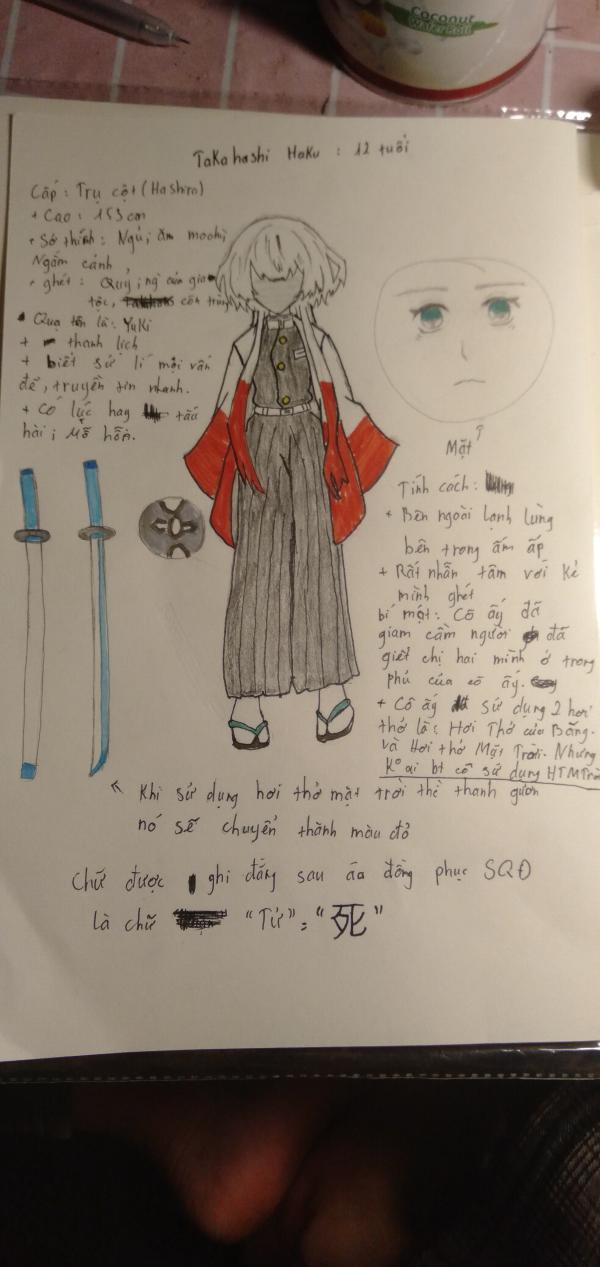 Coconut
Takahashi Haku : 12 tuổi
Cấp : Trụ cột (Hashira)
+ Cao : 153 cm
+ Sở thích : Ngủ, ăn mochi,
Ngắm cảnh,
+ ghét : Quỷ,
tộc, côn trùng
Quạ tên là : Yuki
+ thanh lịch
+ biết sử lí mọi vấn
đề, truyền tin nhanh.
+ Có lúc hay tấu
hài, mỗ hỗn.
Mặt
Tính cách :
+ Bên ngoài lạnh lùng
bên trong ấm áp
+ Rất nhẫn tâm với kẻ
mình ghét
bí mật : Cô ấy đã
giam cầm người đã
giết chị hai mình ở trong
phủ của cô ấy.
+ Cô ấy sử dụng 2 hơi
thở là : Hơi Thở của Băng.
và Hơi thở Mặt Trời. Nhưng
k° ai bt cô sử dụng HTMTrời
Khi sử dụng hơi thở mặt trời thì thanh gươm
nó sẽ chuyển thành màu đỏ
Chữ được ghi đằng sau áo đồng phục SQĐ
là chữ "Tử" = "死"